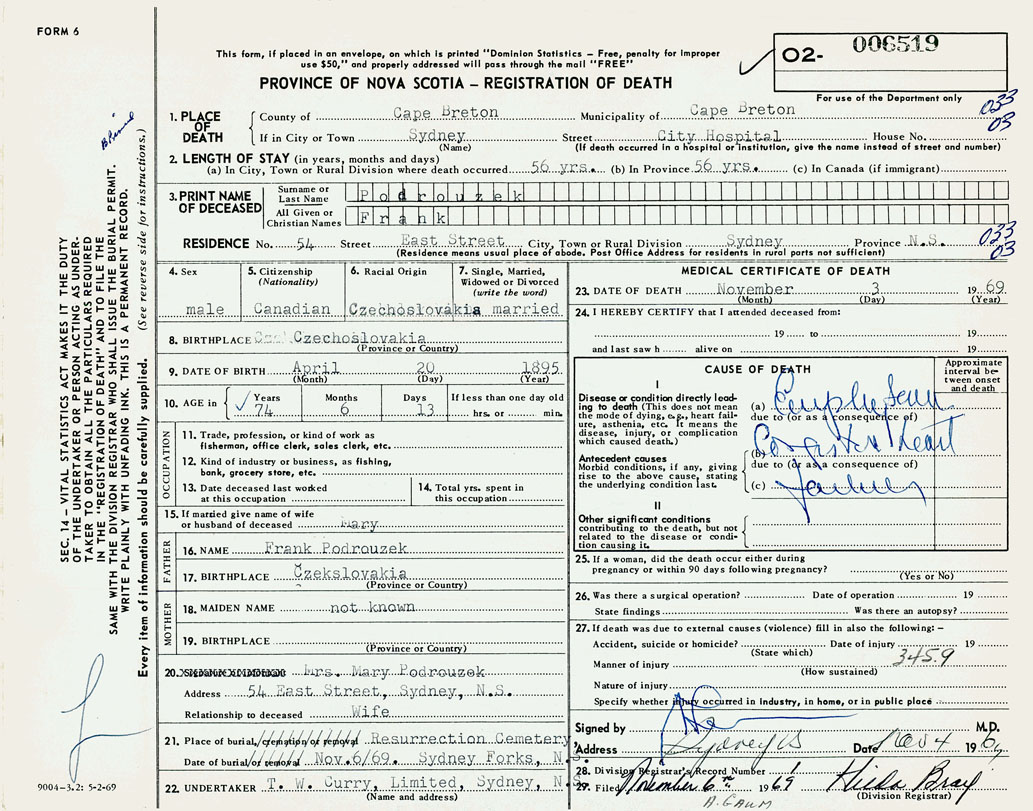 FORM 6
This form, if placed in an envelope, on which is printed "Dominion Statistics – Free, penalty for improper
use $50," and properly addressed will pass through the mail "FREE"
PROVINCE OF NOVA SCOTIA – REGISTRATION OF DEATH
O2- 006519
For use of the Department only
033
03
SEC. 14 – VITAL STATISTICS ACT MAKES IT THE DUTY
OF THE UNDERTAKER OR PERSON ACTING AS UNDER-
TAKER TO OBTAIN ALL THE PARTICULARS REQUIRED
IN THE "REGISTRATION OF DEATH" AND TO FILE THE
SAME WITH THE DIVISION REGISTRAR WHO SHALL ISSUE THE BURIAL PERMIT.
WRITE PLAINLY WITH UNFADING INK. THIS IS A PERMANENT RECORD.
Every item of information should be carefully supplied. (See reverse side for instructions.)
1. PLACE OF DEATH
County of Cape Breton Municipality of Cape Breton
If in City or Town Sydney Street City Hospital House No.
(Name) (If death occurred in a hospital or institution, give the name instead of street and number)
2. LENGTH OF STAY (in years, months and days)
(a) In City, Town or Rural Division where death occurred 56 yrs. (b) In Province 56 yrs. (c) In Canada (if immigrant)
3. PRINT NAME OF DECEASED
Surname or Last Name Podrouzek
All Given or Christian Names Frank
RESIDENCE No. 54 Street East Street City, Town or Rural Division Sydney Province N.S.
(Residence means usual place of abode. Post Office Address for residents in rural parts not sufficient)
033
03
4. Sex
male
5. Citizenship (Nationality)
Canadian
6. Racial Origin
Czechoslovakia
7. Single, Married, Widowed or Divorced (write the word)
married
8. BIRTHPLACE Czechoslavkia
(Province or Country)
9. DATE OF BIRTH April 20 1895
(Month) (Day) (Year)
10. AGE in Years Months Days If less than one day old
74 6 13 hrs. or min.
OCCUPATION
11. Trade, profession, or kind of work as
fisherman, office clerk, sales clerk, etc.
12. Kind of industry or business, as fishing,
bank, grocery store, etc.
13. Date deceased last worked
at this occupation
14. Total yrs. spent in
this occupation
15. If married give name of wife
or husband of deceased Mary
FATHER
16. NAME Frank Podrouzek
17. BIRTHPLACE Czekslovakia
(Province or Country)
MOTHER
18. MAIDEN NAME not known
19. BIRTHPLACE
(Province or Country)
20. Mrs. Mary Podrouzek
Address 54 East Street, Sydney, N.S.
Relationship to deceased Wife
21. Place of burial, cremation or removal Resurrection Cemetery,
Date of burial or removal Nov.6/69. Sydney Forks, N.S.
22. UNDERTAKER T. W. Curry, Limited, Sydney, N.S.
(Name and address)
9004-3.2: 5-2-69
MEDICAL CERTIFICATE OF DEATH
23. DATE OF DEATH November 3 1969
(Month) (Day) (Year)
24. I HEREBY CERTIFY that I attended deceased from:
19 to 19
and last saw h alive on 19
CAUSE OF DEATH
Approximate interval between onset and death
I
Disease or condition directly lead-
ing to death (This does not mean
the mode of dying, e.g., heart fail-
ure, asthenia, etc. It means the
disease, injury, or complication
which caused death.)
(a)
due to (or as a consequence of)
Antecedent causes
Morbid conditions, if any, giving
rise to the above cause, stating
the underlying condition last.
(b) Heart
due to (or as a consequence of)
(c) Failure
II
Other significant conditions
contributing to the death, but not
related to the disease or condi-
tion causing it.
25. If a woman, did the death occur either during
pregnancy or within 90 days following pregnancy?
(Yes or No)
26. Was there a surgical operation? Date of operation 19
State findings Was there an autopsy?
27. If death was due to external causes (violence) fill in also the following: –
Accident, suicide or homicide? Date of injury 19
(State which) 3459
Manner of injury
(How sustained)
Nature of injury
Specify whether injury occurred in industry, in home, or in public place
Signed by M.D.
Address Sydney NS Date Nov 4 1969
28. Division Registrar's Record Number
29. Filed November 6th 1969 Hilda Bray
(Division Registrar)